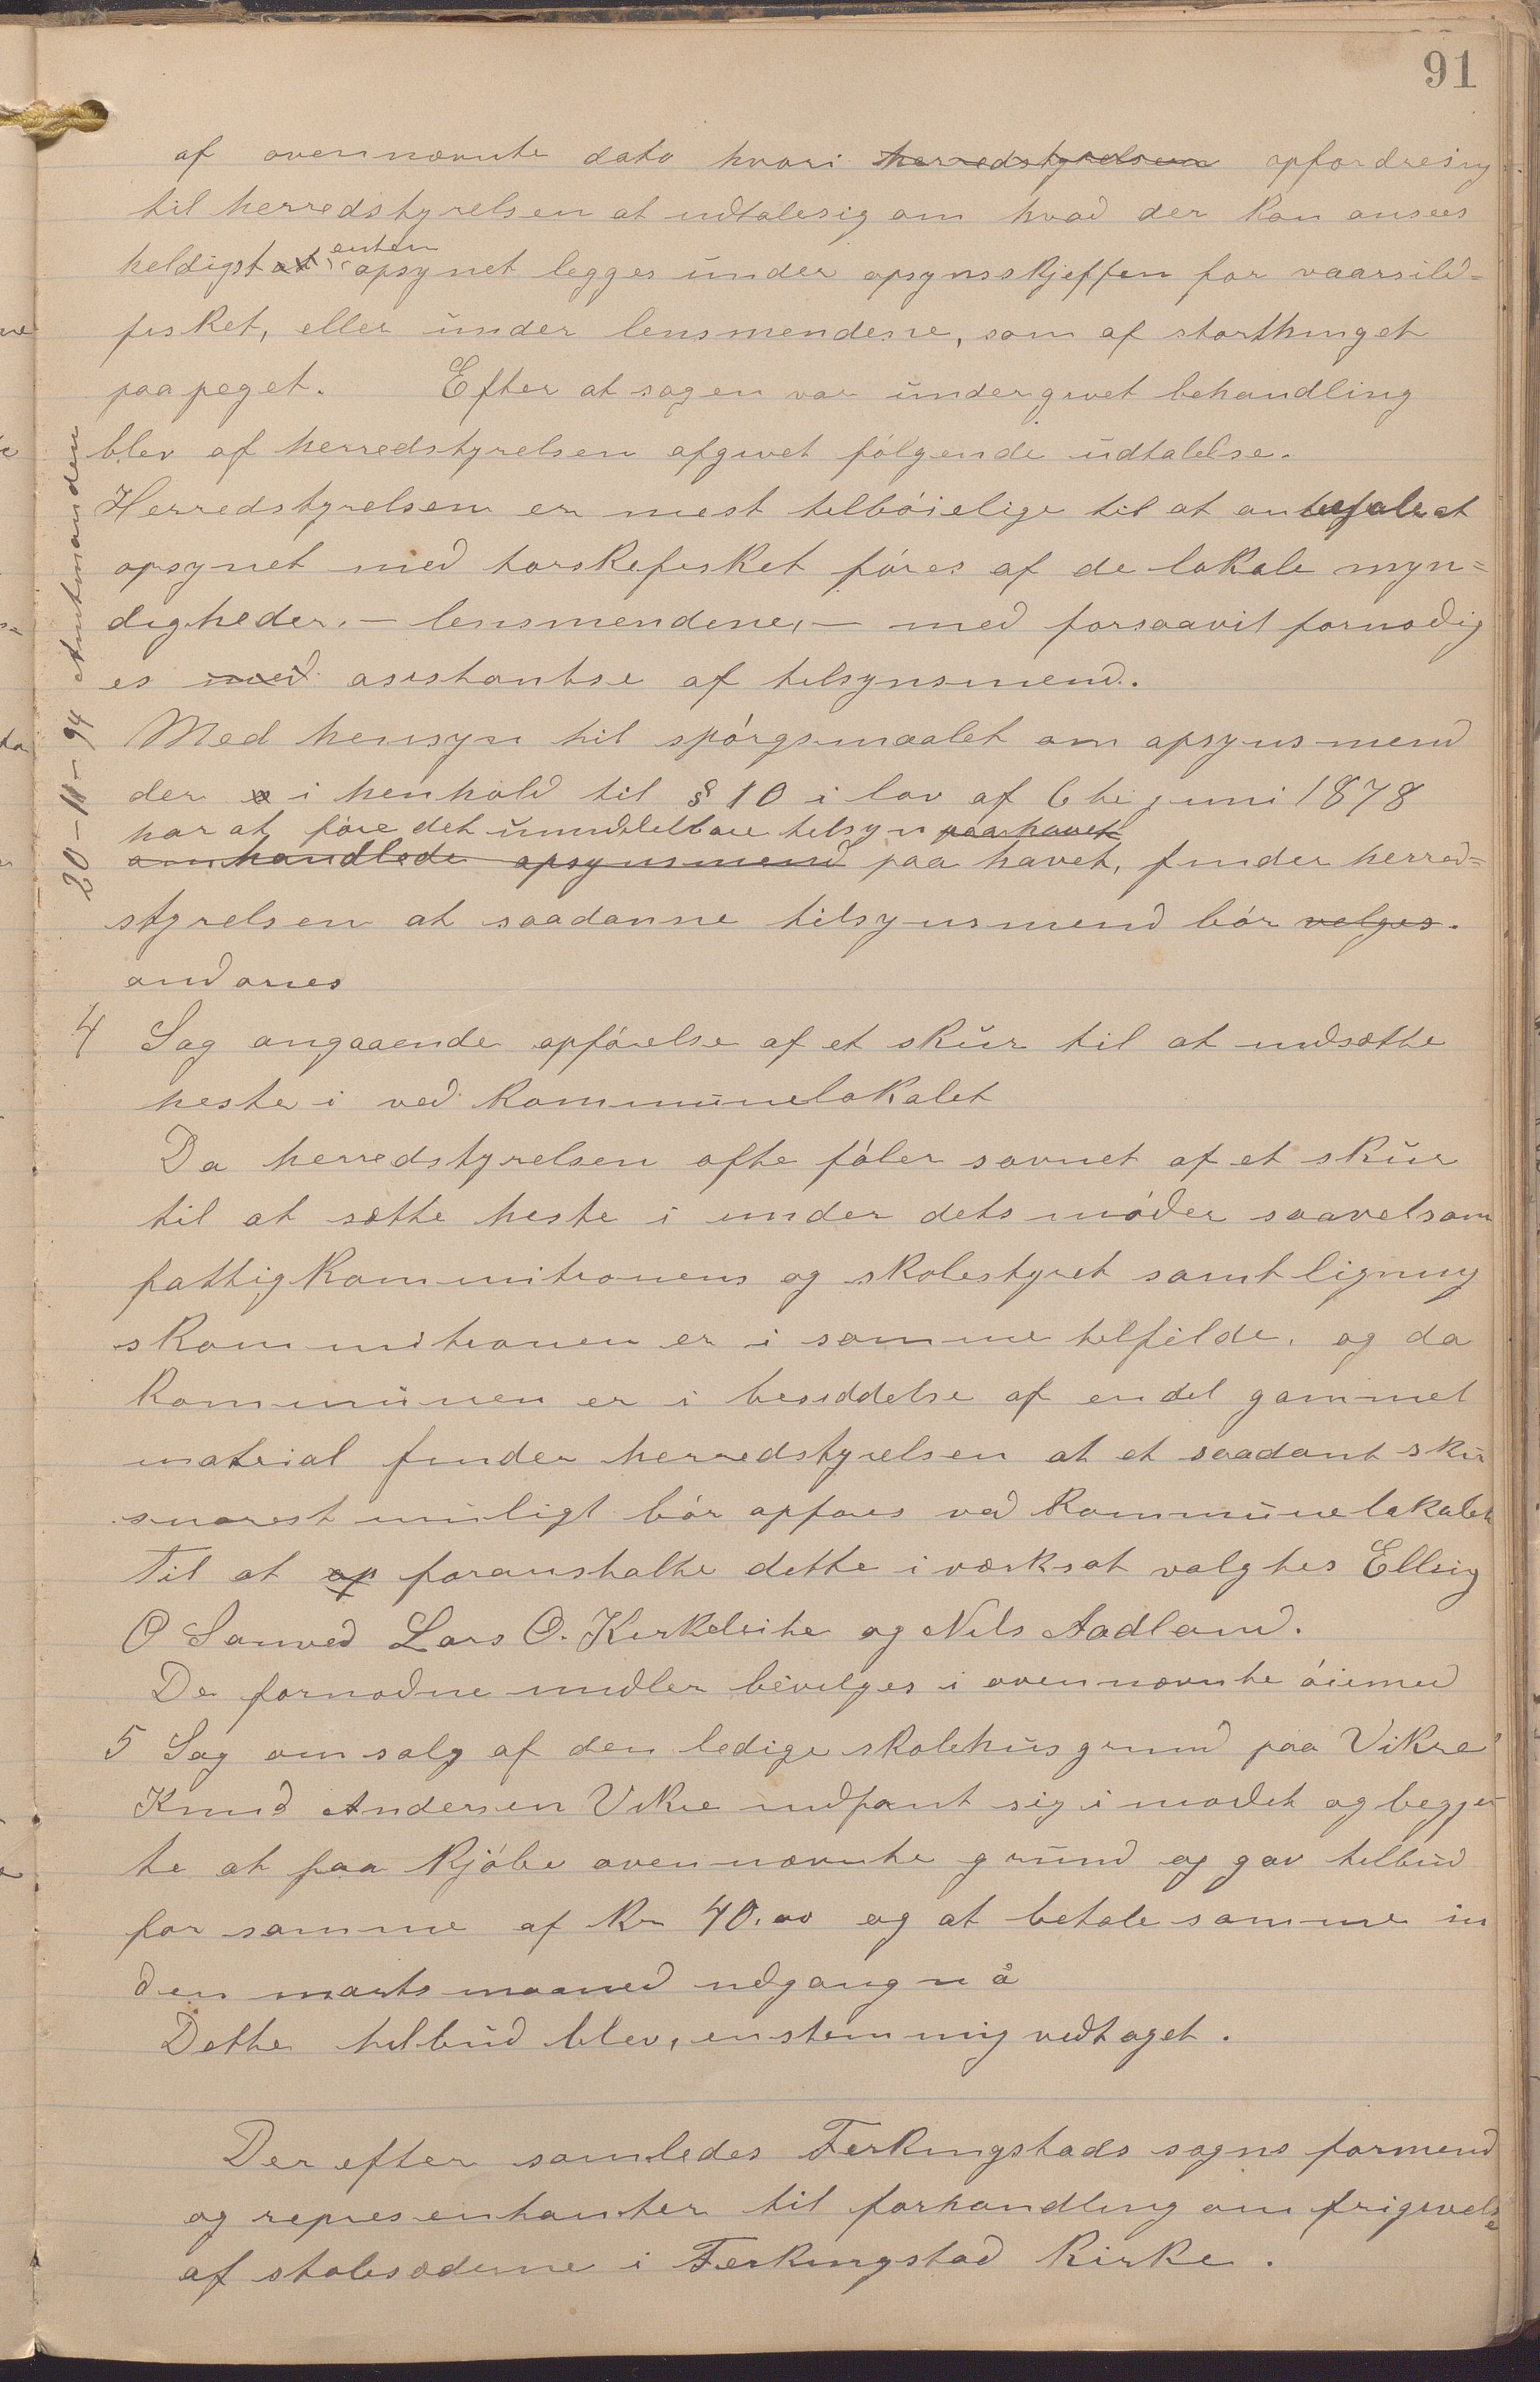 91
af ovennævnte dato hvori herredstyrelsen opfordresing
til herredstyrelsen at udtalesig om hvad der kan ansees
heldigst at enten opsynet legges under opsynsskjeffen for vaarsild=
fisket, eller under lensmendene, som af storthinget
paapeget. Efter at sagen var undergivet behandling
blev af herredstyrelsen afgivet følgende udtalelse.
Herredstyrelsen er mest tilbøielige til at anbefale at
opsynet med torskefisket føres af de lokale myn=
digheder, — lensmendene, — med forsaavit fornødig
es med asistantse af tilsynsmend.
Med hensyn til spørgsmaalet om opsynsmend
der i henhold til § 10 i lov af 6te juni 1878
har at føre det umidelbare tilsyn paa havet
omhandlede opsynsmend paa havet, finder herred=
styrelsen at saadanne tilsynsmend bør velges.
andanes
20-11-94 Amtmanden
4 Sag angaaende opførelse af et skur til at indsætte
heste i ved kommunelokalet
Da herredstyrelsen ofte føler savnet af et skur
til at sætte heste i under dets møder saavelsom
fattigkommitionens og skolestyret samt ligning
skommitionen er i samme telfelde, og da
kommunen er i besiddelse af endel gammel
matrial finder herredstyrelsen at et saadant skur
snarest muligt bør opføres ved kommunelokalet
Til at op foranstalte dette i værksat valgtes Ellsig
O Sanved Lars O. Kirkeleite og Nils Aadland.
De fornødne midler bevilges i ovennævnte øiemed
5 Sag om salg af den ledige skolehusgrund paa Vikre
Knud Andersen Vikre indfant sig i mødet og begjer
te at faa kjøbe ovennævnte grund og gav tilbud
for samme af kr 40.00 og at betale samme in
den marts maaned udgang n å
Dette tilbud blev, enstemmig vedtaget.
Der efter samledes Ferkingstads sogns formend
og representanter til forhandling om frigivelse
af stolesæderne i Ferkingstad kirke.